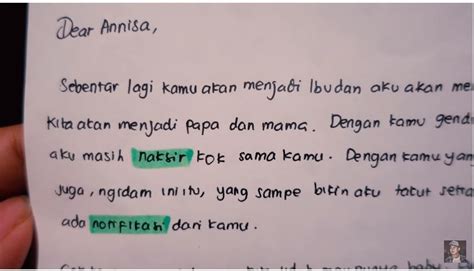 Dear Annisa,
Sebentar lagi kamu akan menjadi Ibu dan aku akan me
Kita akan menjadi papa dan mama. Dengan kamu gend
aku masih naksir kok sama kamu. Dengan kamu yan
juga, ngidam ini itu, yang sampe bikin aku takut setia
ada notifikasi dari kamu.